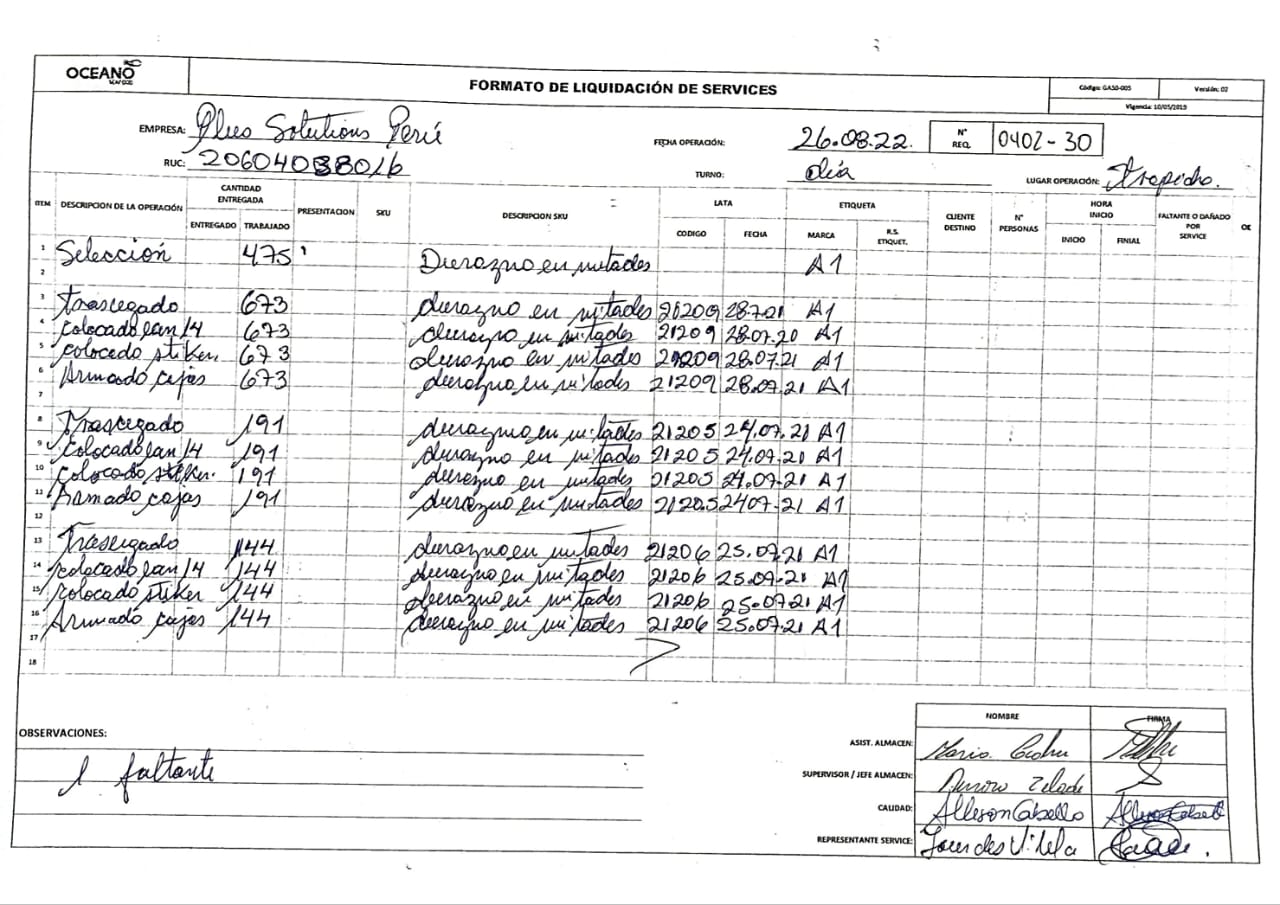 OCEANO
SEAFOOD
FORMATO DE LIQUIDACIÓN DE SERVICES
Código: GASO-005
Versión: 02
Vigencia: 10/05/2019
EMPRESA: Plus Solutions Perú
FECHA OPERACIÓN: 26.08.22.
N° REQ. 0402-30
RUC: 20604038016
TURNO: día
LUGAR OPERACIÓN: Trapicho.
ITEM DESCRIPCION DE LA OPERACIÓN CANTIDAD ENTREGADA PRESENTACION SKU DESCRIPCION SKU LATA ETIQUETA CLIENTE DESTINO N° PERSONAS HORA INICIO FALTANTE O DAÑADO POR SERVICE OE
ENTREGADO TRABAJADO CODIGO FECHA MARCA R.S. ETIQUET. INICIO FINIAL
1 Selección 475 Durazno en mitades A1
2
3 Trasegado 673 durazno en mitades 21209 28.7.21 A1
4 Colocado lan 14 673 durazno en mitades 21209 28.07.20 A1
5 colocado stiker. 673 durazno en mitades 21209 28.07.21 A1
6 Armado cajas 673 durazno en mitades 21209 28.07.21 A1
7
8 Trascegado 191 durazno en mitades 21205 24.07.21 A1
9 Colocado lan 14 191 durazno en mitades 21205 24.07.21 A1
10 Colocado stiker. 191 durazno en mitades 21205 24.07.21 A1
11 Armado cajas 191 durazno en mitades 21205 2407.21 A1
12
13 Trasegado 144 durazno en mitades 21206 25.07.21 A1
14 colocado lan 14 144 durazno en mitades 21206 25.07.21 A1
15 colocado stiker 144 durazno en mitades 21206 25.07.21 A1
16 Armado cajas 144 durazno en mitades 21206 25.07.21 A1
17
18
NOMBRE FIRMA
OBSERVACIONES:
1 faltante
ASIST. ALMACEN: Mario
SUPERVISOR / JEFE ALMACEN:
CALIDAD: Allison Cabello
REPRESENTANTE SERVICE: Lourdes Vilela